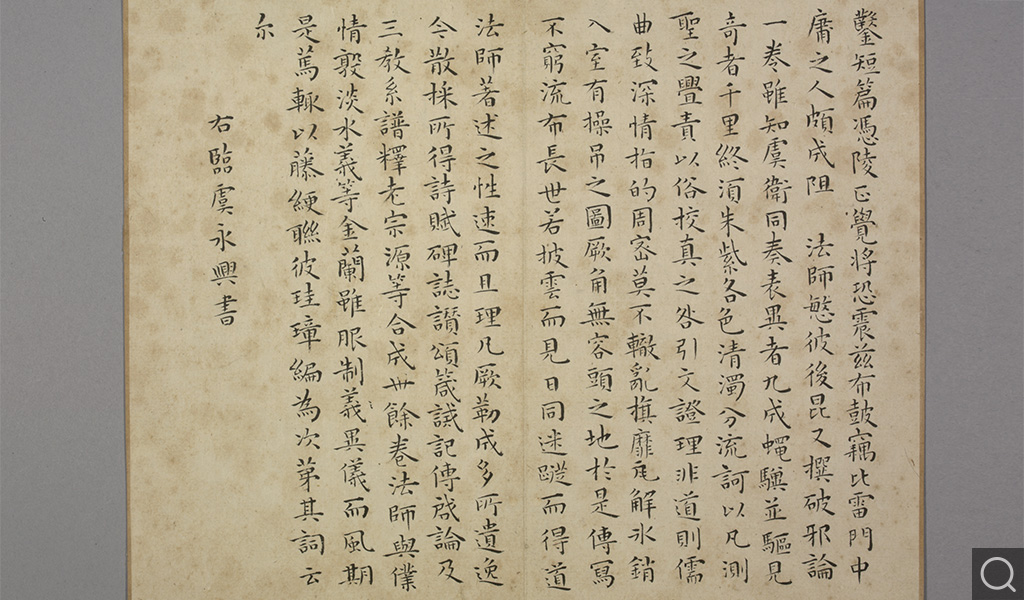 鑿短篇憑陵正覺將恐震茲布鼓竊比雷門中
庸之人頗成阻　法師愍彼後昆又撰破邪論
一卷雖知虞衛同奏表異者九成蠅驥並驅見
奇者千里終須朱紫各色清濁分流訶以凡測
聖之舋責以俗挍真之咎引文證理非道則儒
曲致深情指的周密莫不轍亂旗靡瓦解氷銷
入室有操吊之圖厥角無容頭之地於是傳寫
不窮流布長世若披雲而見日同迷蹤而得道
法師著述之性速而且理凡厥勒成多所遺逸
今散採所得詩賦碑誌讃頌箴誡記傳啟論及
三教系譜釋老宗源等合成卅餘卷法師與僕
情敦淡水義等金蘭雖服制義異儀而風期
是篤輒以藤綆聯彼珪璋編為次第其詞云
尒
右臨虞永興書